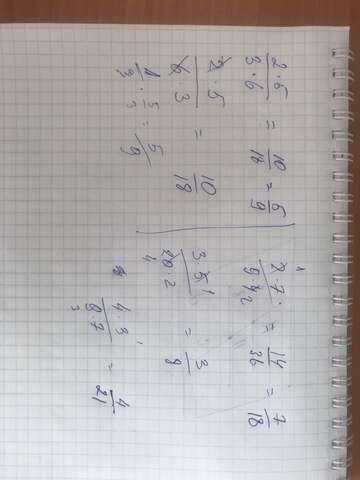 2·5/3·6 = 10/18 = 5/9
2·5/6·3 = 10/18
1/3 · 5/3 = 5/9
1
2·7/9·4 2 = 14/36 = 7/18
3·5 1/20·2 4 = 3/8
4·3 1/9·7 3 = 4/21